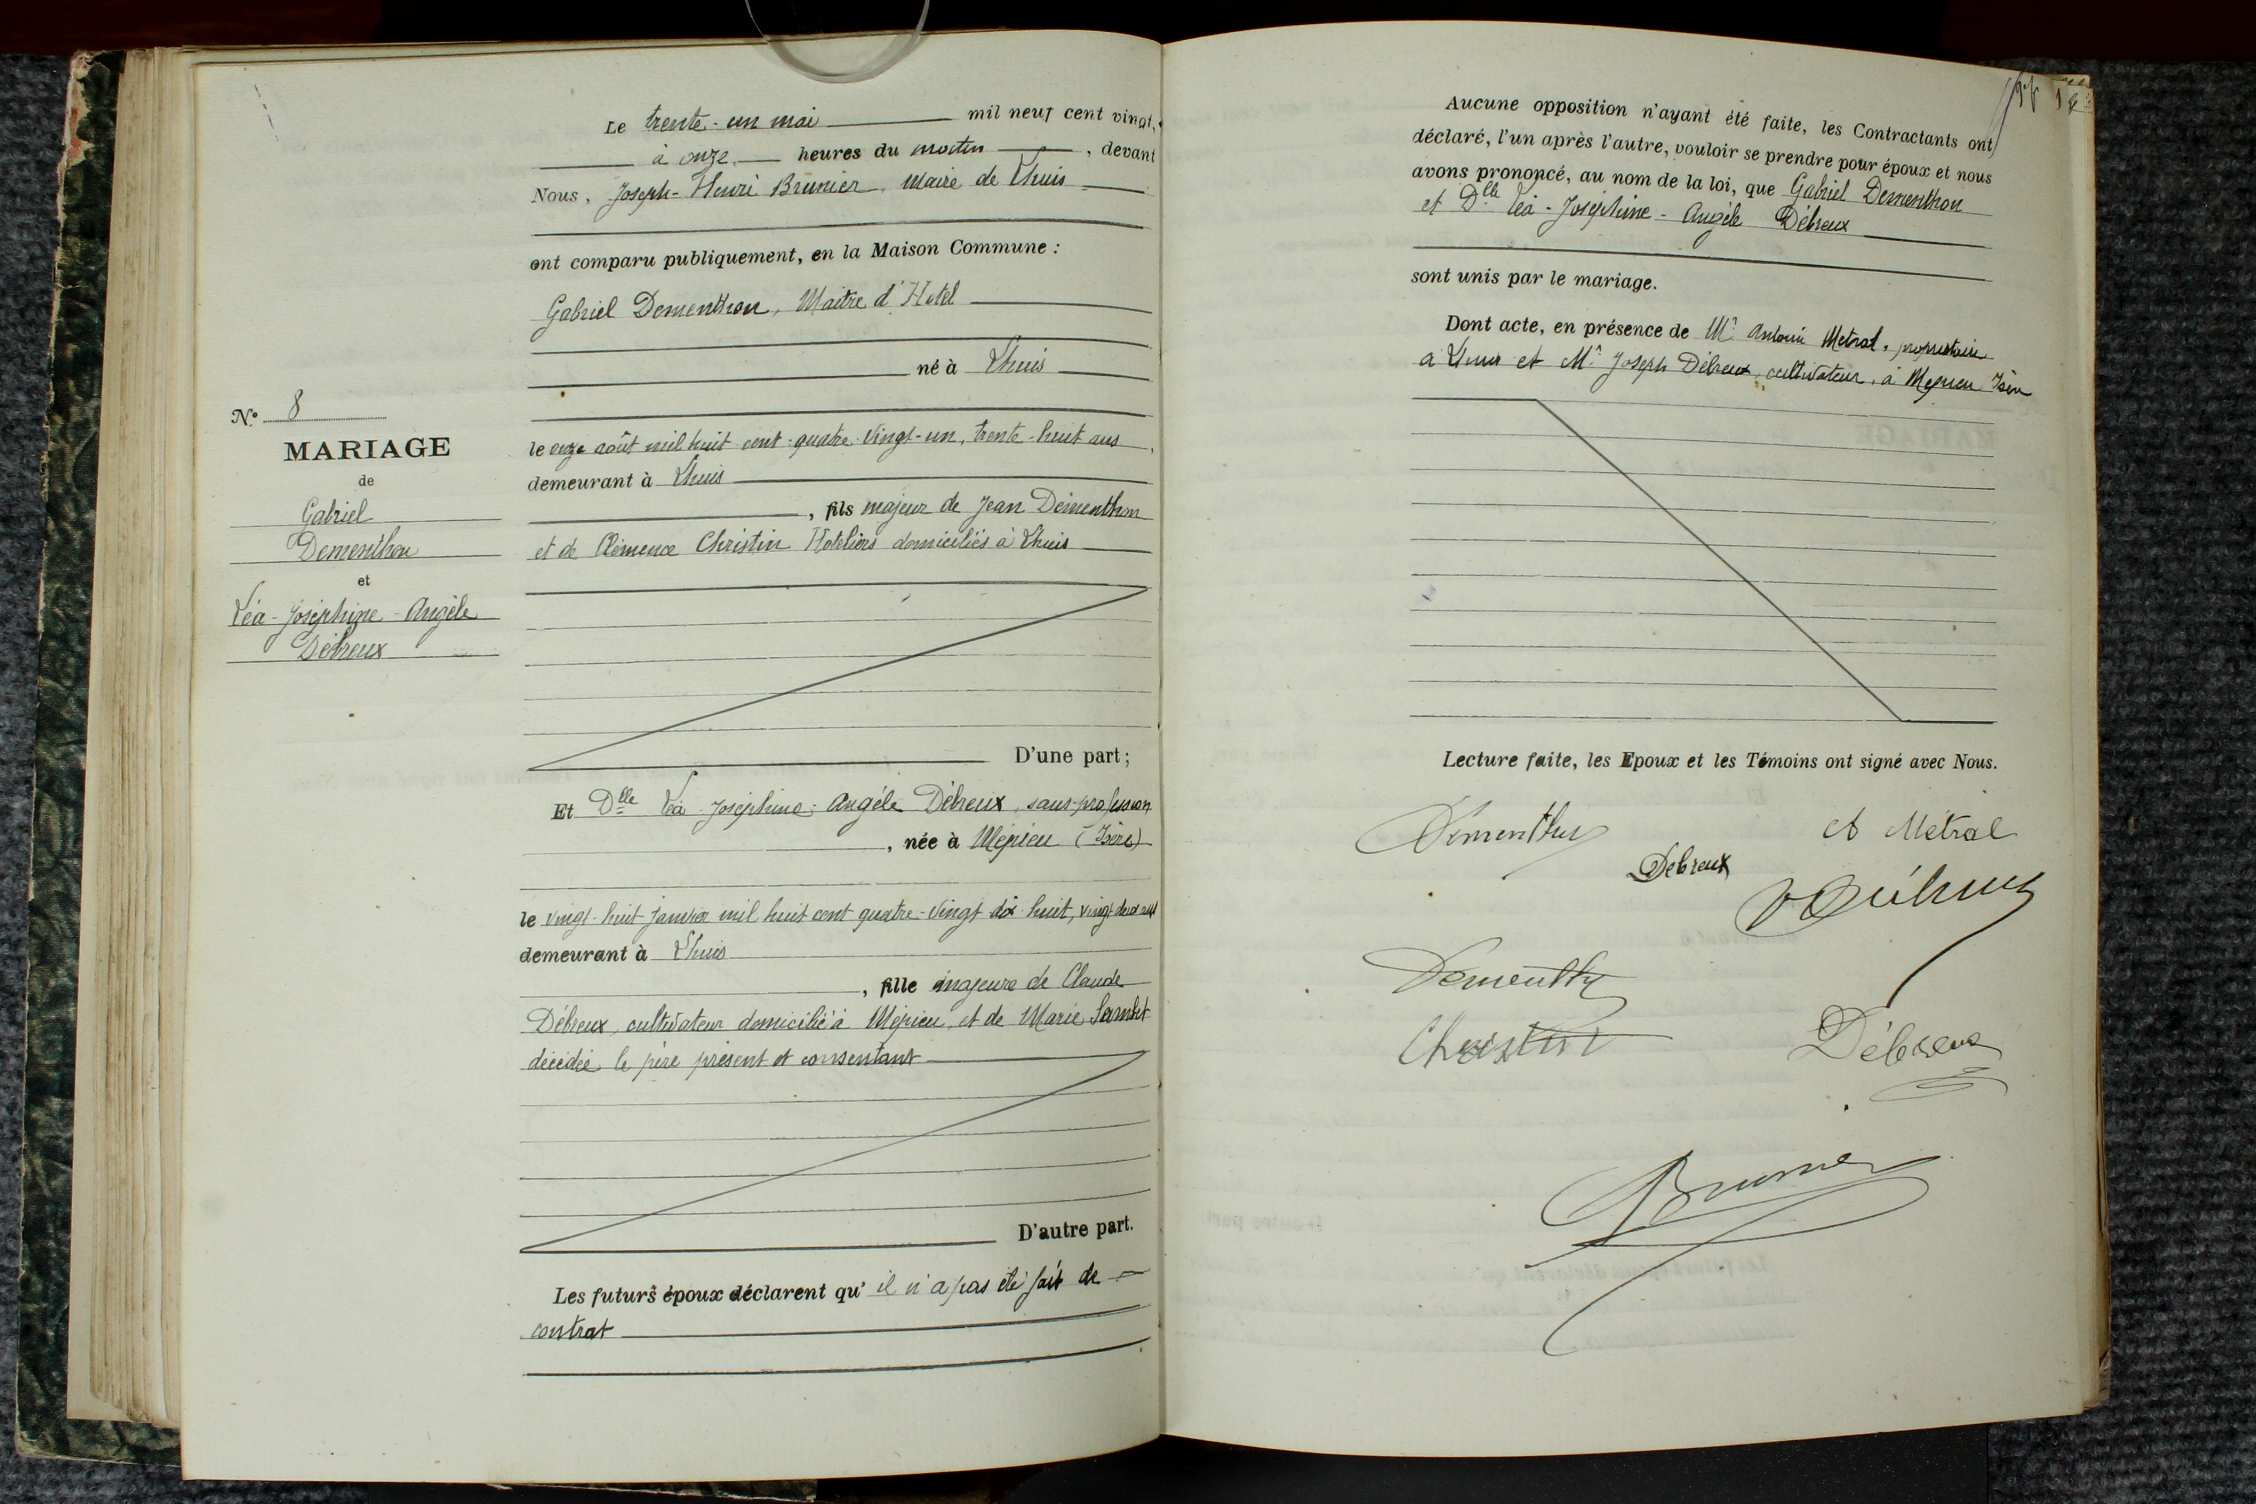 Le trente-un mai mil neuf cent vingt,
à onze heures du matin, devant
Nous, Joseph-Henri Brunier, Maire de Lhuis
ont comparu publiquement, en la Maison Commune :
Gabriel Dementhon, Maître d'Hotel
né à Lhuis
le onze août mil huit cent quatre-vingt-un, trente-huit ans,
demeurant à Lhuis
, fils majeur de Jean Dementhon
et de Clémence Christin Hoteliers domiciliés à Lhuis
D'une part;
Nº 8
MARIAGE
de
Gabriel
Dementhon
et
Léa-Joséphine-Angèle
Débreux
Et Dlle Léa-Joséphine-Angèle Débreux, sans profession
, née à Mépieu (Isère)
le vingt-huit janvier mil huit cent quatre-vingt dix-huit, vingt deux ans
demeurant à Lhuis
, fille majeure de Claude
Débreux, cultivateur domicilié à Mépieu, et de Marie
décédée le père présent et consentant
D'autre part.
Les futurs époux déclarent qu'il n'a pas été fait de
contrat
Aucune opposition n'ayant été faite, les Contractants ont
déclaré, l'un après l'autre, vouloir se prendre pour époux et nous
avons prononcé, au nom de la loi, que Gabriel Dementhon
et Dlle Léa-Joséphine-Angèle Débreux
sont unis par le mariage.
Dont acte, en présence de Mr Antonin Metral, propriétaire
à Lhuis et Mr Joseph Débreux, cultivateur, à Mepieu Isère
Lecture faite, les Epoux et les Témoins ont signé avec Nous.
Dementhon
A Métral
Débreux
Dementhon
Christin
Débreux
Brunier